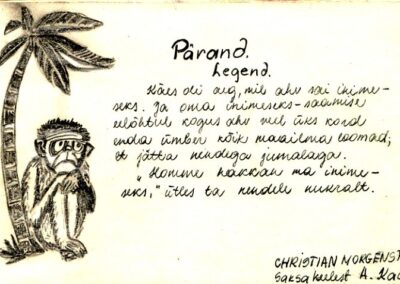 Pärand.
Legend.
Käes oli aeg, mil ahv sai inime-
seks. Ja oma inimeseks-saamise
eelõhtul kogus ahv veel üks kord
enda ümber kõik maailma loomad,
et jätta nendega jumalaga.
„Homme hakkan ma inime-
seks," ütles ta nendele nukralt.
CHRISTIAN MORGENST
Saksa keelest A. Kaa